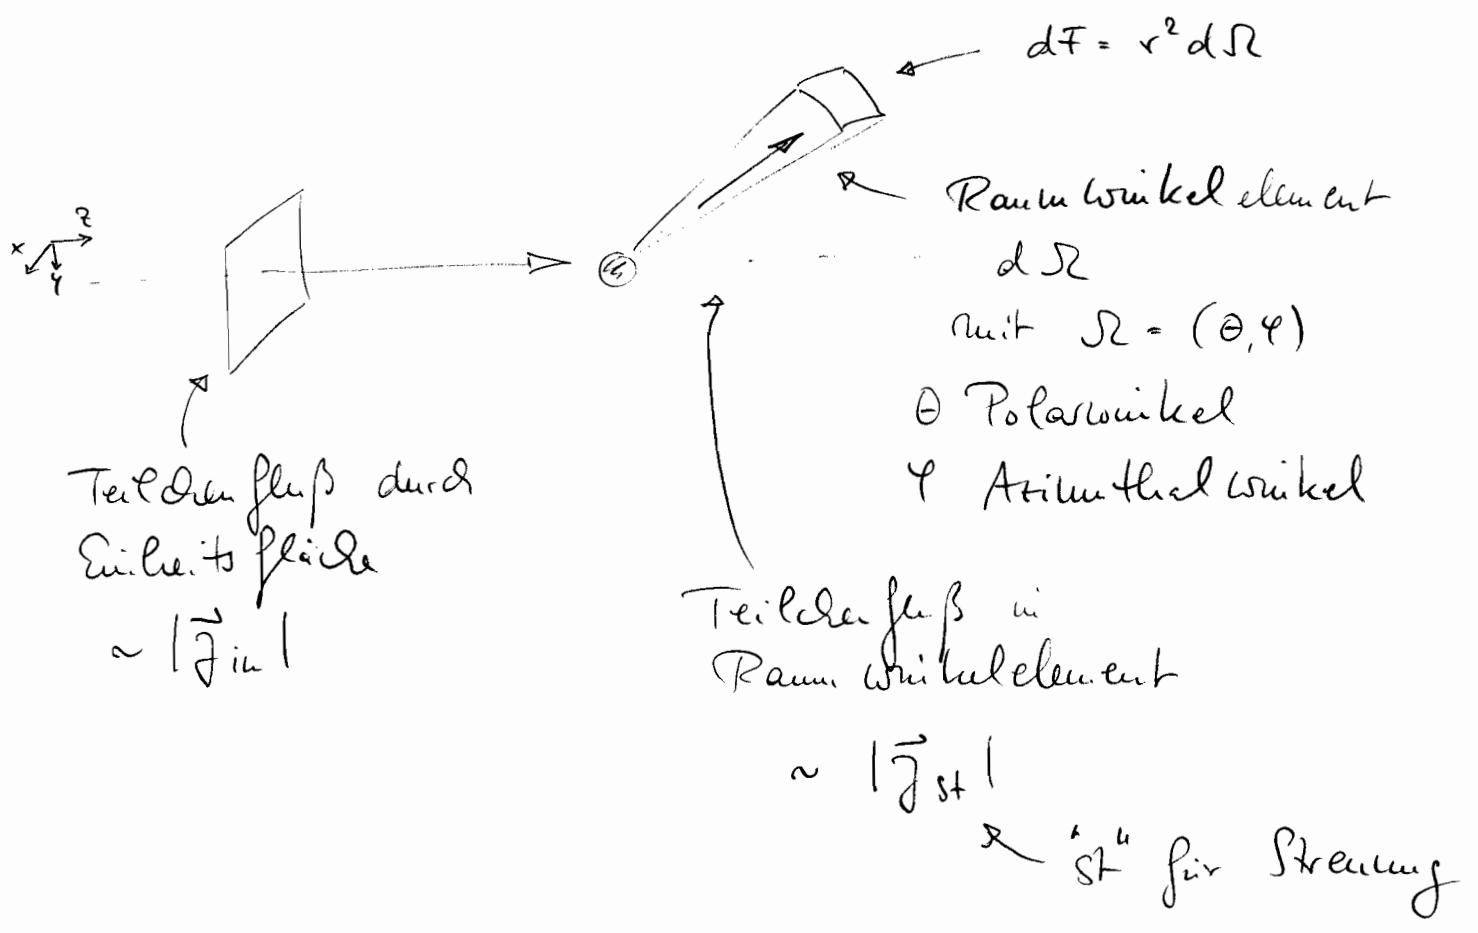 dF = r² dΩ
Raumwinkelelement
dΩ
mit Ω = (θ, φ)
θ Polarwinkel
φ Azimuthalwinkel
z
x
y
Teilchenfluß durch
Einheitsfläche
~ |j⃗ in|
Teilchenfluß in
Raumwinkelelement
~ |j⃗ st|
"st" für Streuung